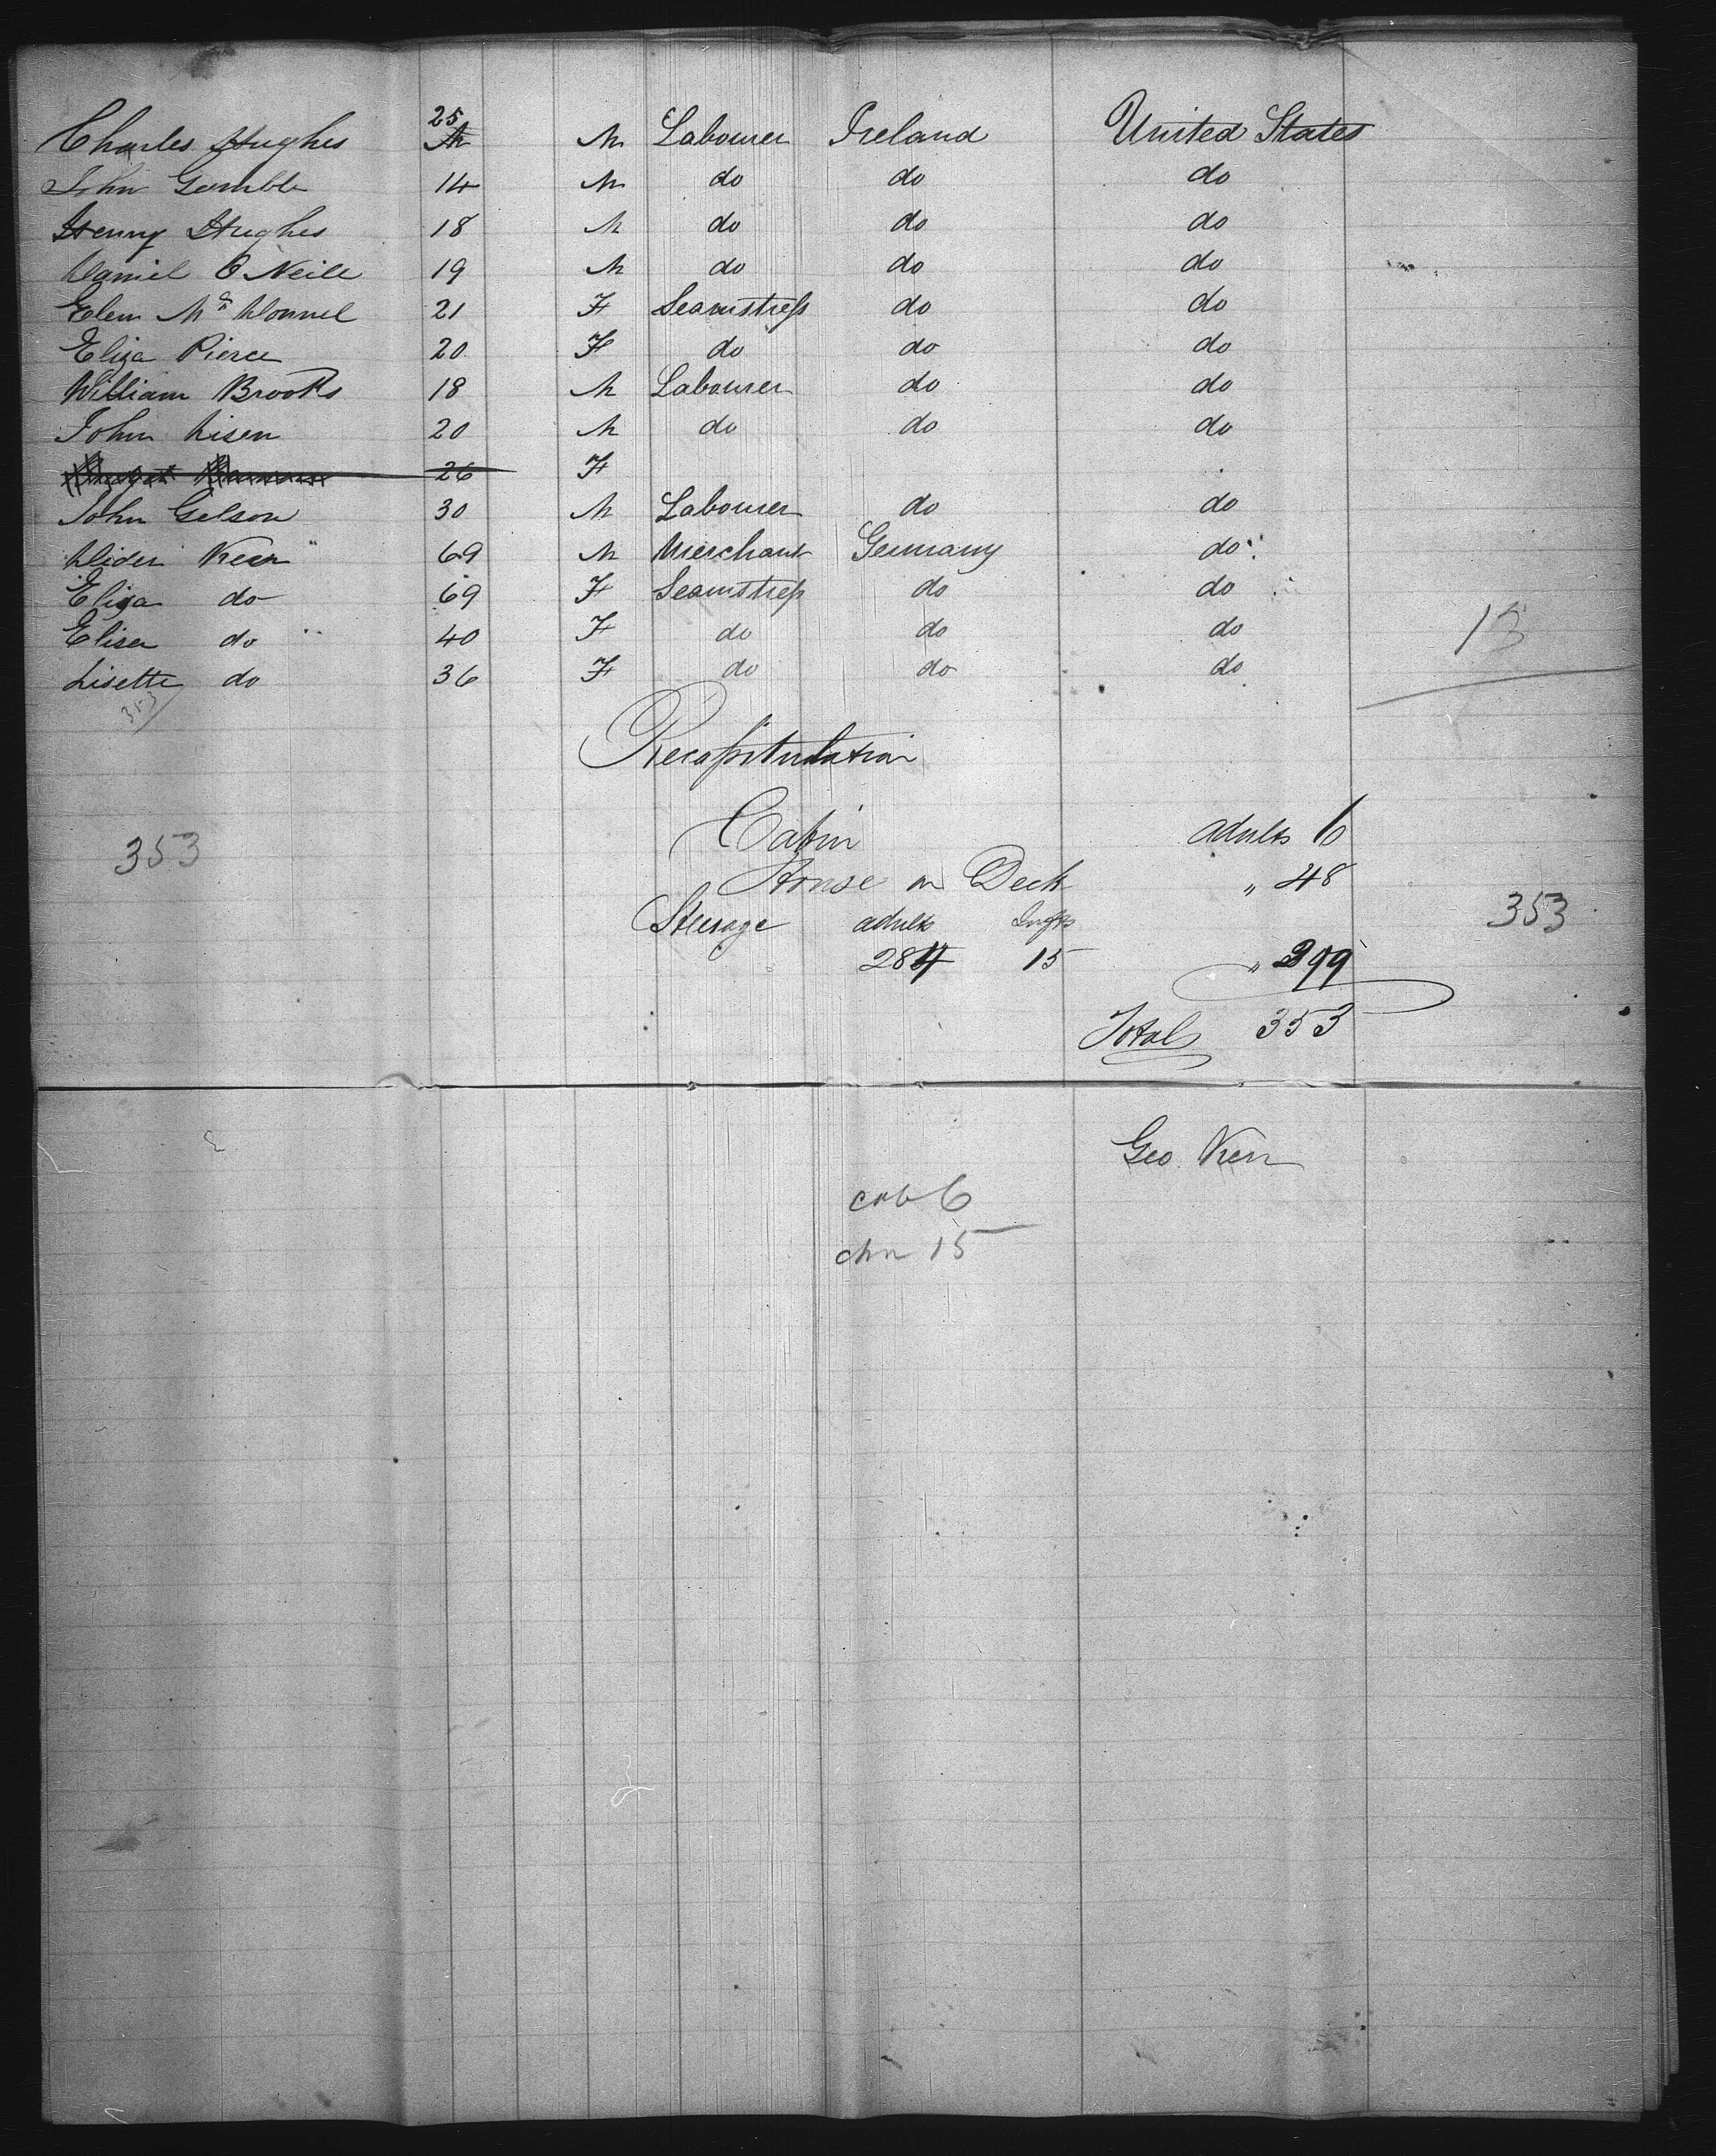 Charles Hughes 25 M Labourer Ireland United States
John Gamble 14 M do do do
Henry Hughes 18 M do do do
Daniel O Neill 19 M do do do
Elen Mc Donnel 21 F Seamstress do do
Eliza Pierce 20 F do do do
William Brooks 18 M Labourer do do
John Lisen 20 M do do do
26 F
John Gelson 30 M Labourer do do
Dider Kern 69 M Merchant Germany do
Eliza do 69 F Seamstress do do
Elisa do 40 F do do do
13
Lisette do 36 F do do do
353
Recapitulation
Cabin adults 6
353
House on Deck " 48
Steerage adults Infts
353
284 15 " 299
Total 353
Geo Kerr
cab 6
chn 15